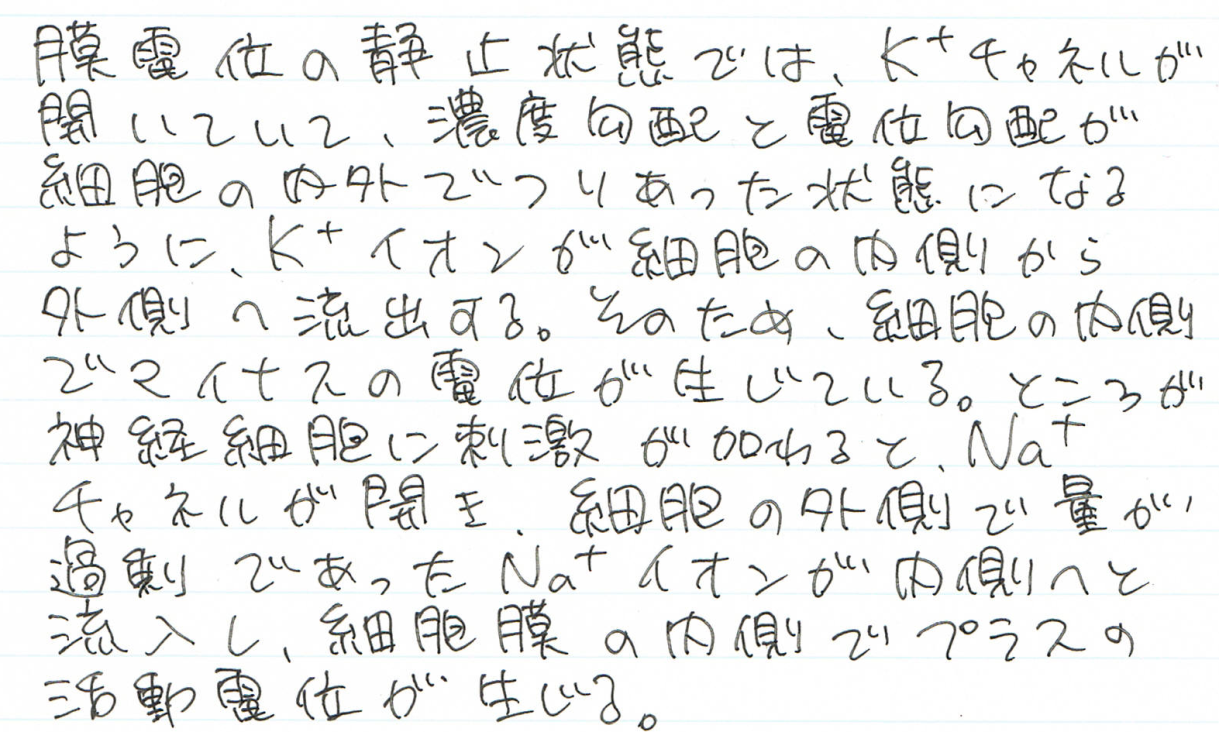 膜電位の静止状態では、K⁺チャネルが
開いていて、濃度勾配と電位勾配が
細胞の内外でつりあった状態になる
ように、K⁺イオンが細胞の内側から
外側へ流出する。そのため、細胞の内側
でマイナスの電位が生じている。ところが
神経細胞に刺激が加わると、Na⁺
チャネルが開き、細胞の外側で量が
過剰であったNa⁺イオンが内側へと
流入し、細胞膜の内側でプラスの
活動電位が生じる。